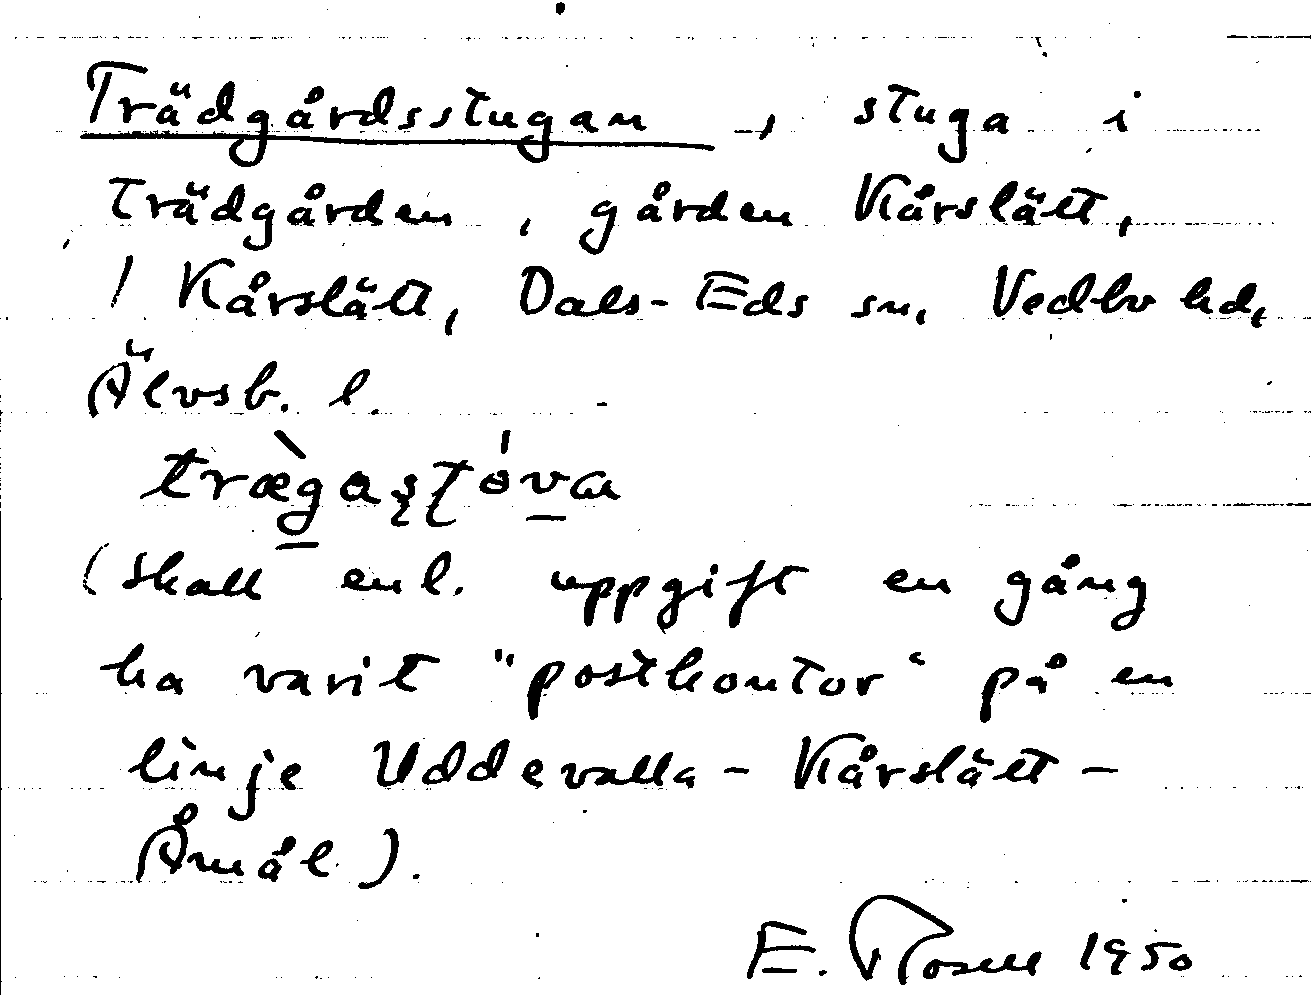 Trädgårdsstugan, stuga i
Trädgården, gården Kårslätt,
1 Kårslätt, Dals-Eds sn, Vedbo hd,
Älvsb. l.
træ̀gaʂʈóva
(skall enl. uppgift en gång
ha varit "postkontor" på en
linje Uddevalla - Kårslätt -
Åmål).
E. Rosell 1950